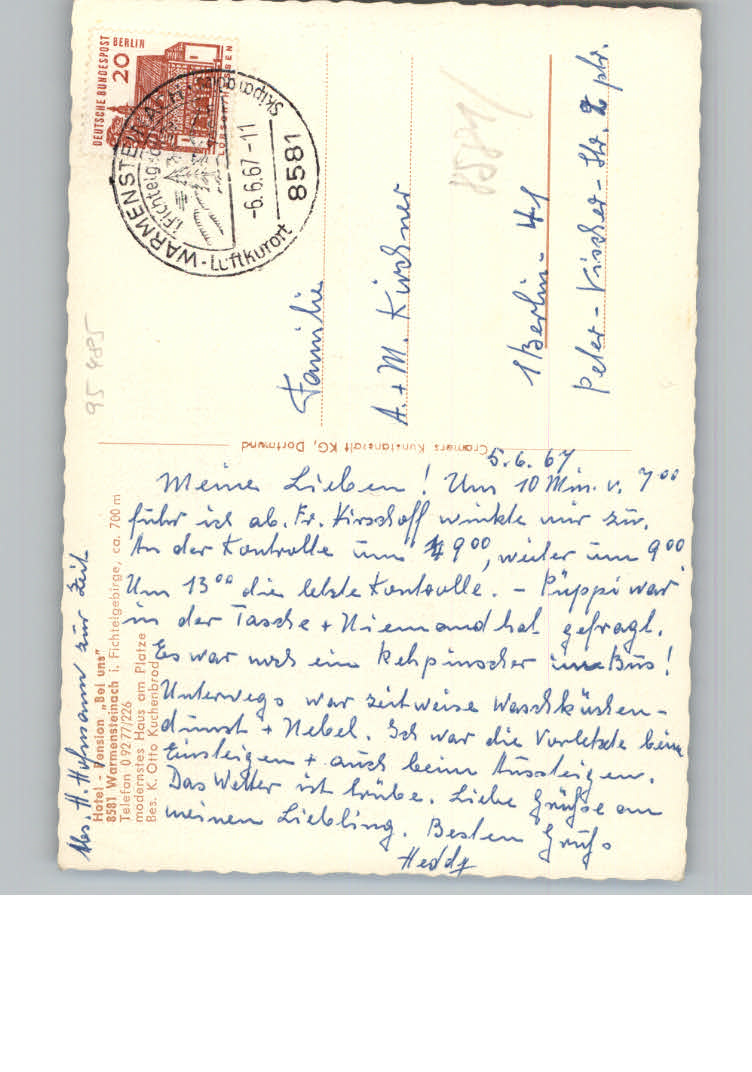 DEUTSCHE BUNDESPOST
BERLIN
20
LORSCH/HESSEN
WARMENSTEINACH
(Fichtelgeb.)
Skiparadies
-6.6.67-11
8581
Luftkurort
8581/
95 4885
Familie
A. + M. Kirchner
1 Berlin - 41
Peter - Vischer - Str. 2 ptr.
Cramers Kunstanstalt KG, Dortmund
5.6.67
Meine Lieben! Um 10 Min. v. 7 00
fuhr ich ab. Fr. Kirschoff winkte mir zu.
An der Kontrolle um 9 00, weiter um 9 00
Um 13 00 die letzte Kontrolle. - Püppi war
in der Tasche + Niemand hat gefragt.
Es war noch ein Rehpinscher im Bus!
Unterwegs war zeitweise Waschküchen-
dunst + Nebel. Ich war die Vorletzte beim
Einsteigen + auch beim Aussteigen.
Das Wetter ist trübe. Liebe Grüße an
meinen Liebling. Besten Gruß
Heddy
Abs. H. Hofmann zur Zeit
Hotel - Pension „Bei uns"
8581 Warmensteinach i. Fichtelgebirge, ca. 700 m
Telefon 0 92 77/226
modernstes Haus am Platze
Bes. K. Otto Kuchenbrod